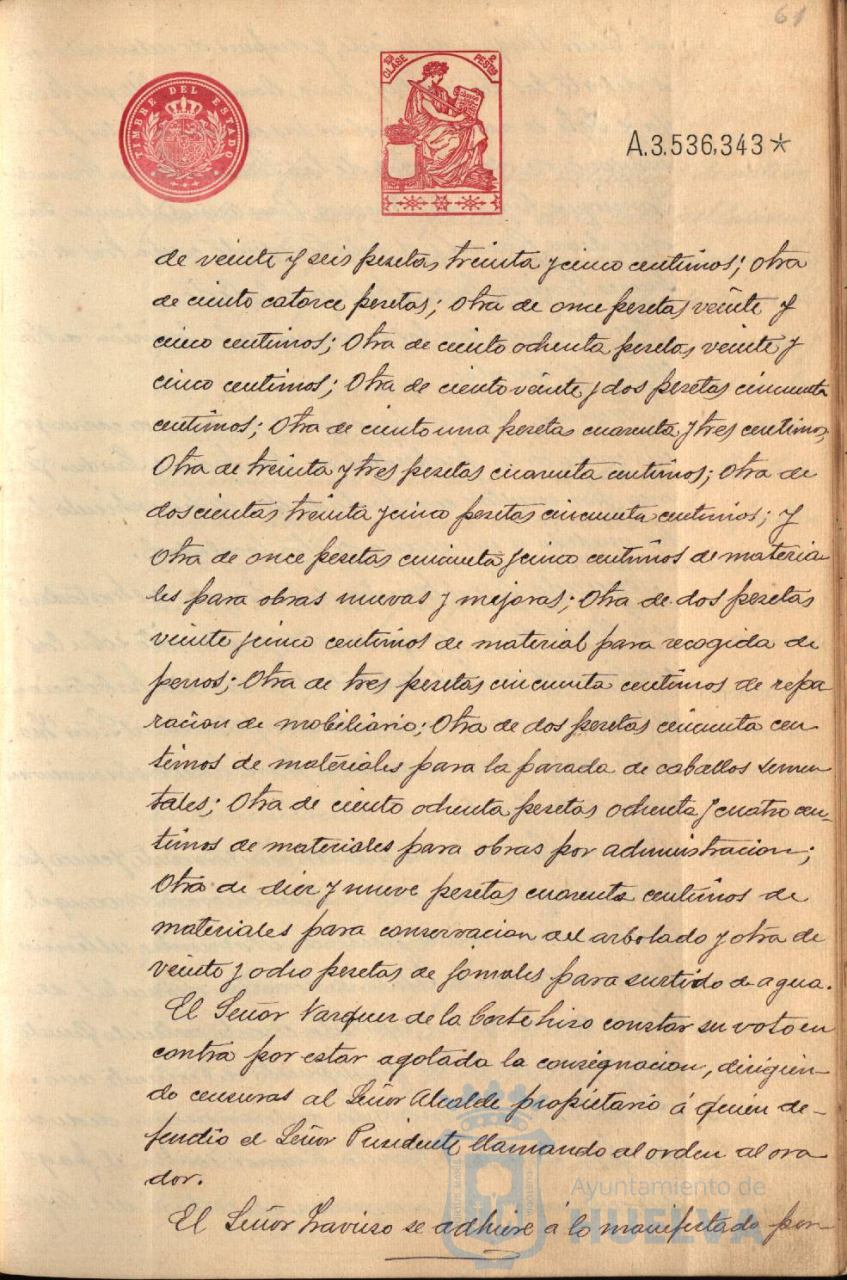 61
TIMBRE DEL ESTADO
10ª CLASE 2 PESTAS
A.3.536,343*
de veinte y seis pesetas treinta y cinco centimos; Otra
de ciento catorce pesetas; Otra de once pesetas veinte y
cinco centimos; Otra de ciento ochenta pesetas veinte y
cinco centimos; Otra de ciento veinte y dos pesetas cincuenta
centimos; Otra de ciento una pesetas cuarenta y tres centimos,
Otra de treinta y tres pesetas cuarenta centimos; Otra de
doscientas treinta y cinco pesetas cincuenta centimos; y
Otra de once pesetas cincuenta y cinco centimos de materia-
les para obras nuevas y mejoras; Otra de dos pesetas
veinte y cinco centimos de material para recogida de
perros; Otra de tres pesetas cincuenta centimos de repa
racion de mobiliario; Otra de dos pesetas cincuenta cen
timos de materiales para la parada de caballos semen
tales; Otra de ciento ochenta pesetas ochenta y cuatro cen-
timos de materiales para obras por administracion;
Otra de diez y nueve pesetas cuarenta centimos de
materiales para conservacion del arbolado y otra de
veinte y ocho pesetas de jornales para surtido de agua.
El Señor Vazquez de la Corte hizo constar su voto en
contra por estar agotada la consignacion, dirigien-
do censuras al Señor Alcalde propietario á quien de-
fendio el Señor Presidente llamando al orden al ora
dor.
El Señor Travieso se adhiere á lo manifestado por
Ayuntamiento de
HUELVA